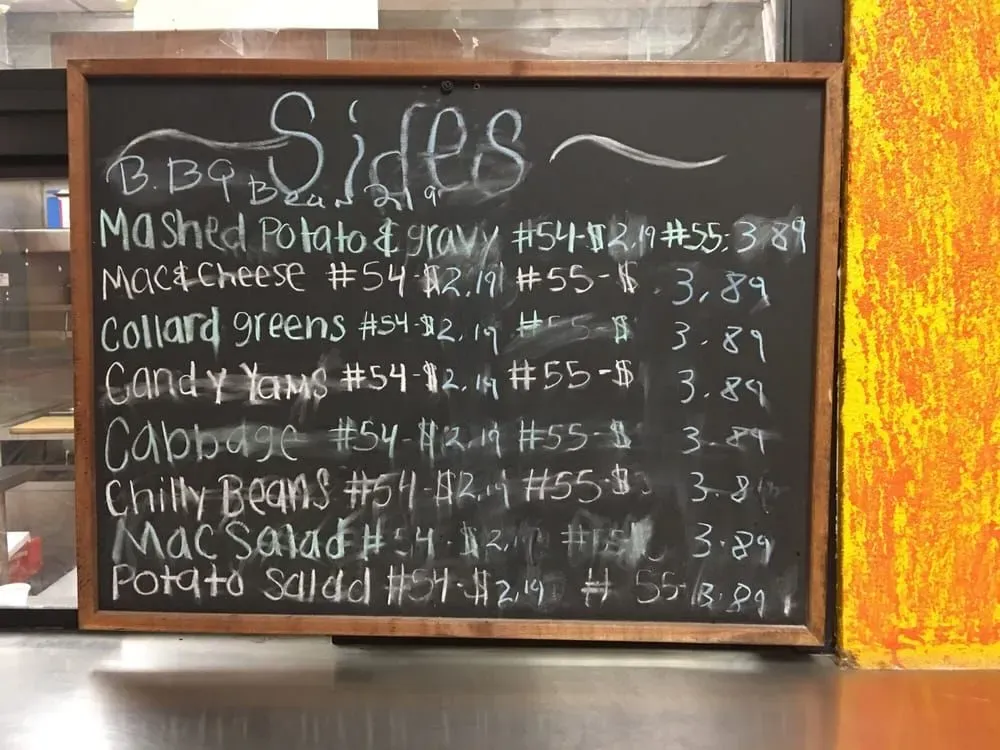 Sides
B.BQ Bean 219
Mashed Potato & gravy #54-$2.19 #55. 3.89
Mac&Cheese #54-$2.19 #55-$ 3.89
Collard greens #54-$2.19 #55-$ 3.89
Candy Yams #54-$2.19 #55-$ 3.89
Cabbage #54-$2.19 #55-$ 3.89
Chilly Beans #54-$2.19 #55-$ 3.8
Mac Salad #54-$2.19 # 3.89
Potato Salad #54-$2.19 # 55- 3.89